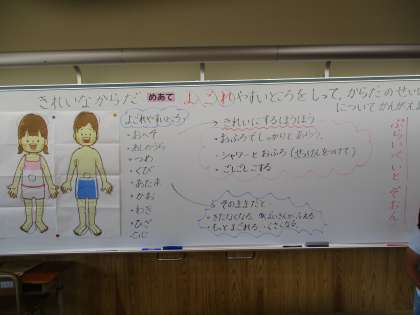 きれいなからだ めあて よごれやすいところをしって、からだのせい
についてかんがえよ
よごれやすいところ
・おへそ
・あしのうら
・つめ
・くび
・あたま
・かお
・わき
・ひざ
きれいにするほうほう
・おふろでしっかりとあらう。
・シャワーとおふろ(せっけんをつけて)
・ごしごしこする
そのままだと
・きたなくなる
・もっとよごれる くさくなる
ぷらいべいとぞおん